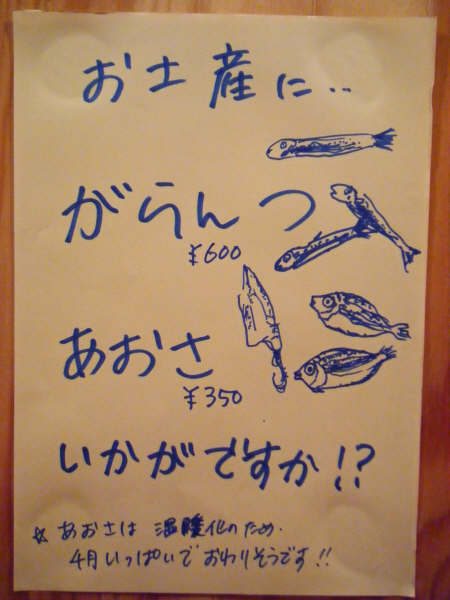 お土産に..
がらんつ
¥600
あおさ
¥350
いかがですか!?
☆ あおさは 温暖化のため.
4月いっぱいで おわりそうです!!